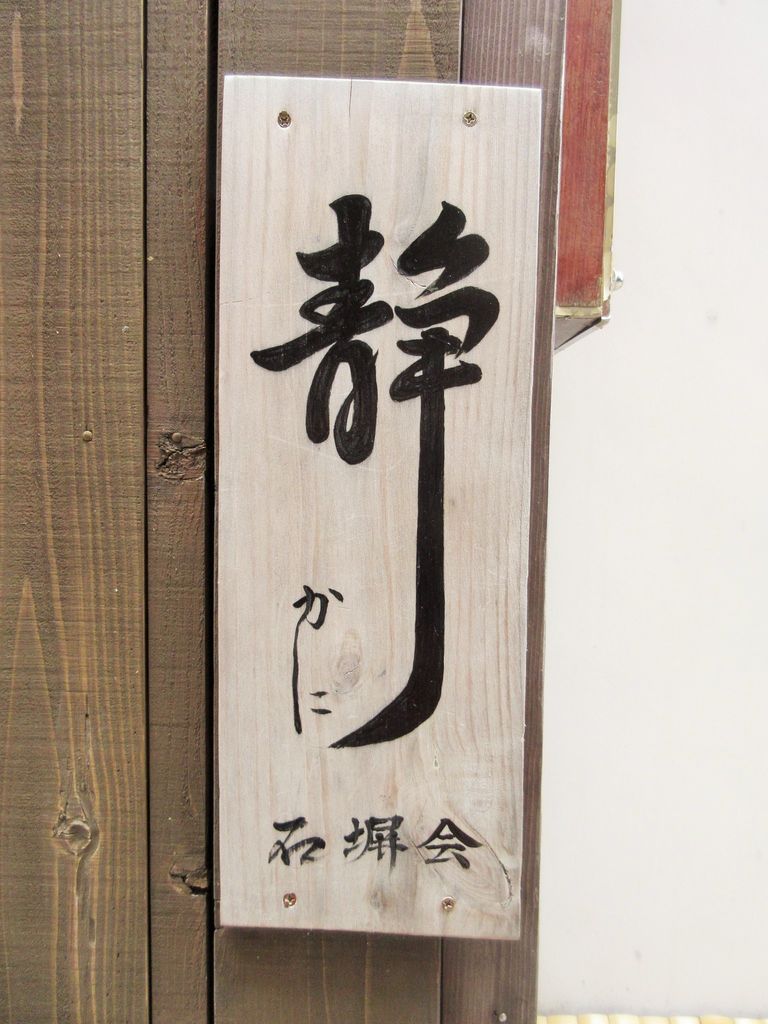 静
かに
石塀会